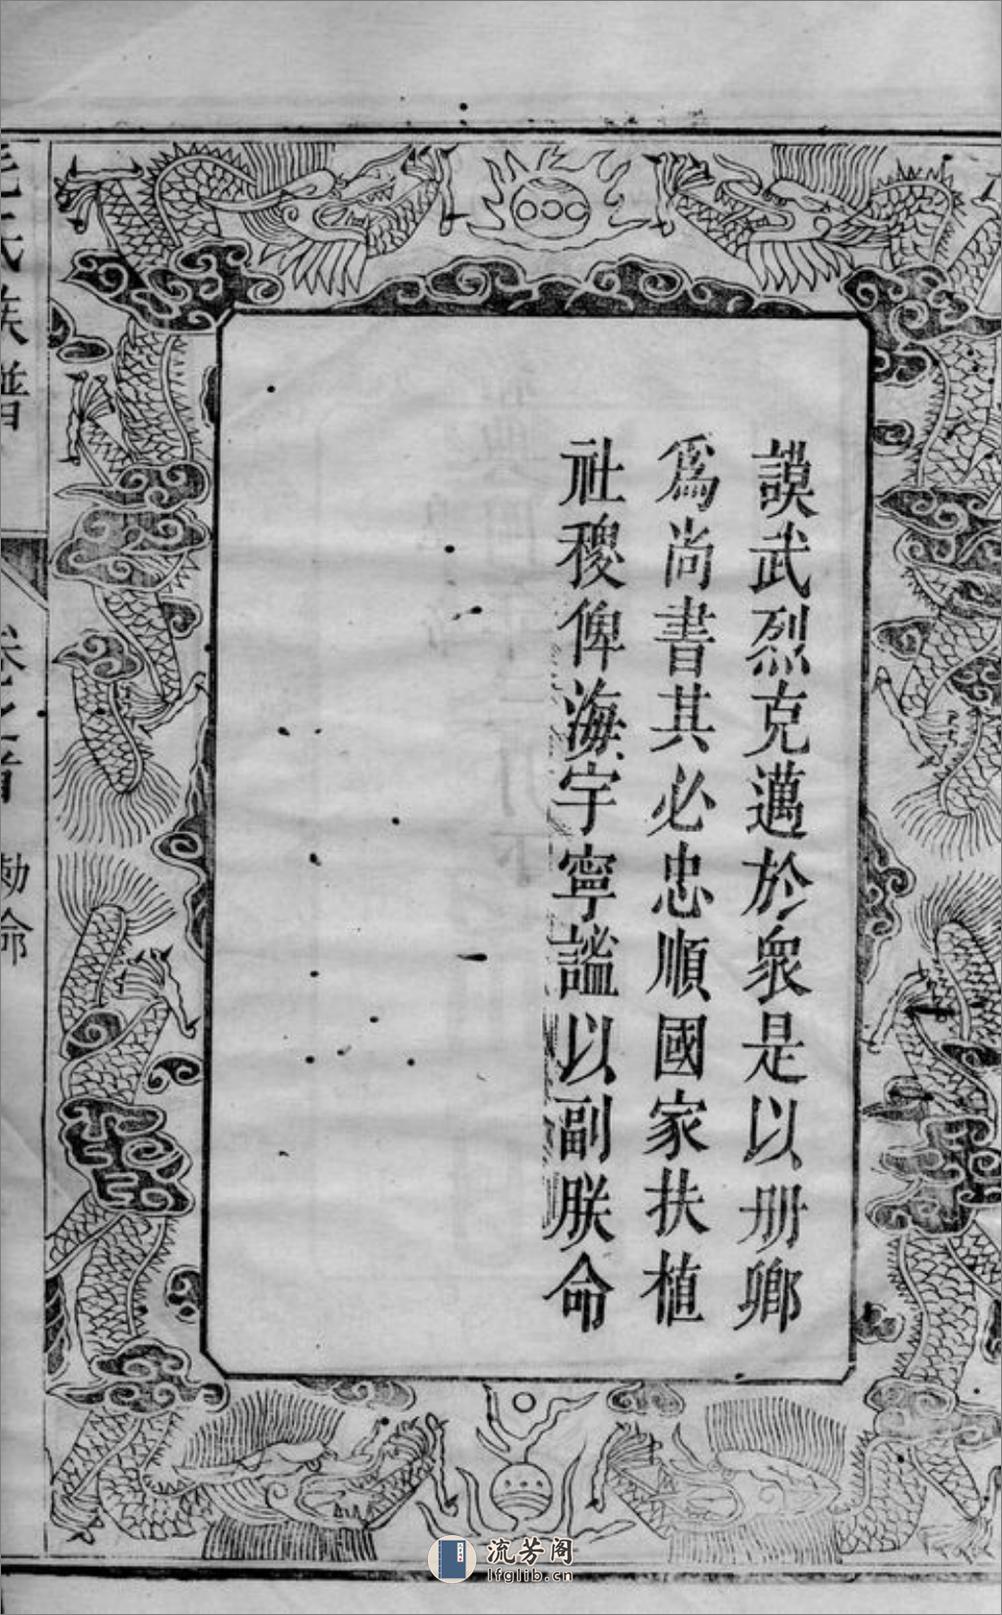 謨武烈克邁於衆是以册鄉
爲尚書其必忠順國家扶植
社稷俾海宇寧謐以副朕命
氏族譜
卷之首
勅命
流芳阁
lfglib.cn